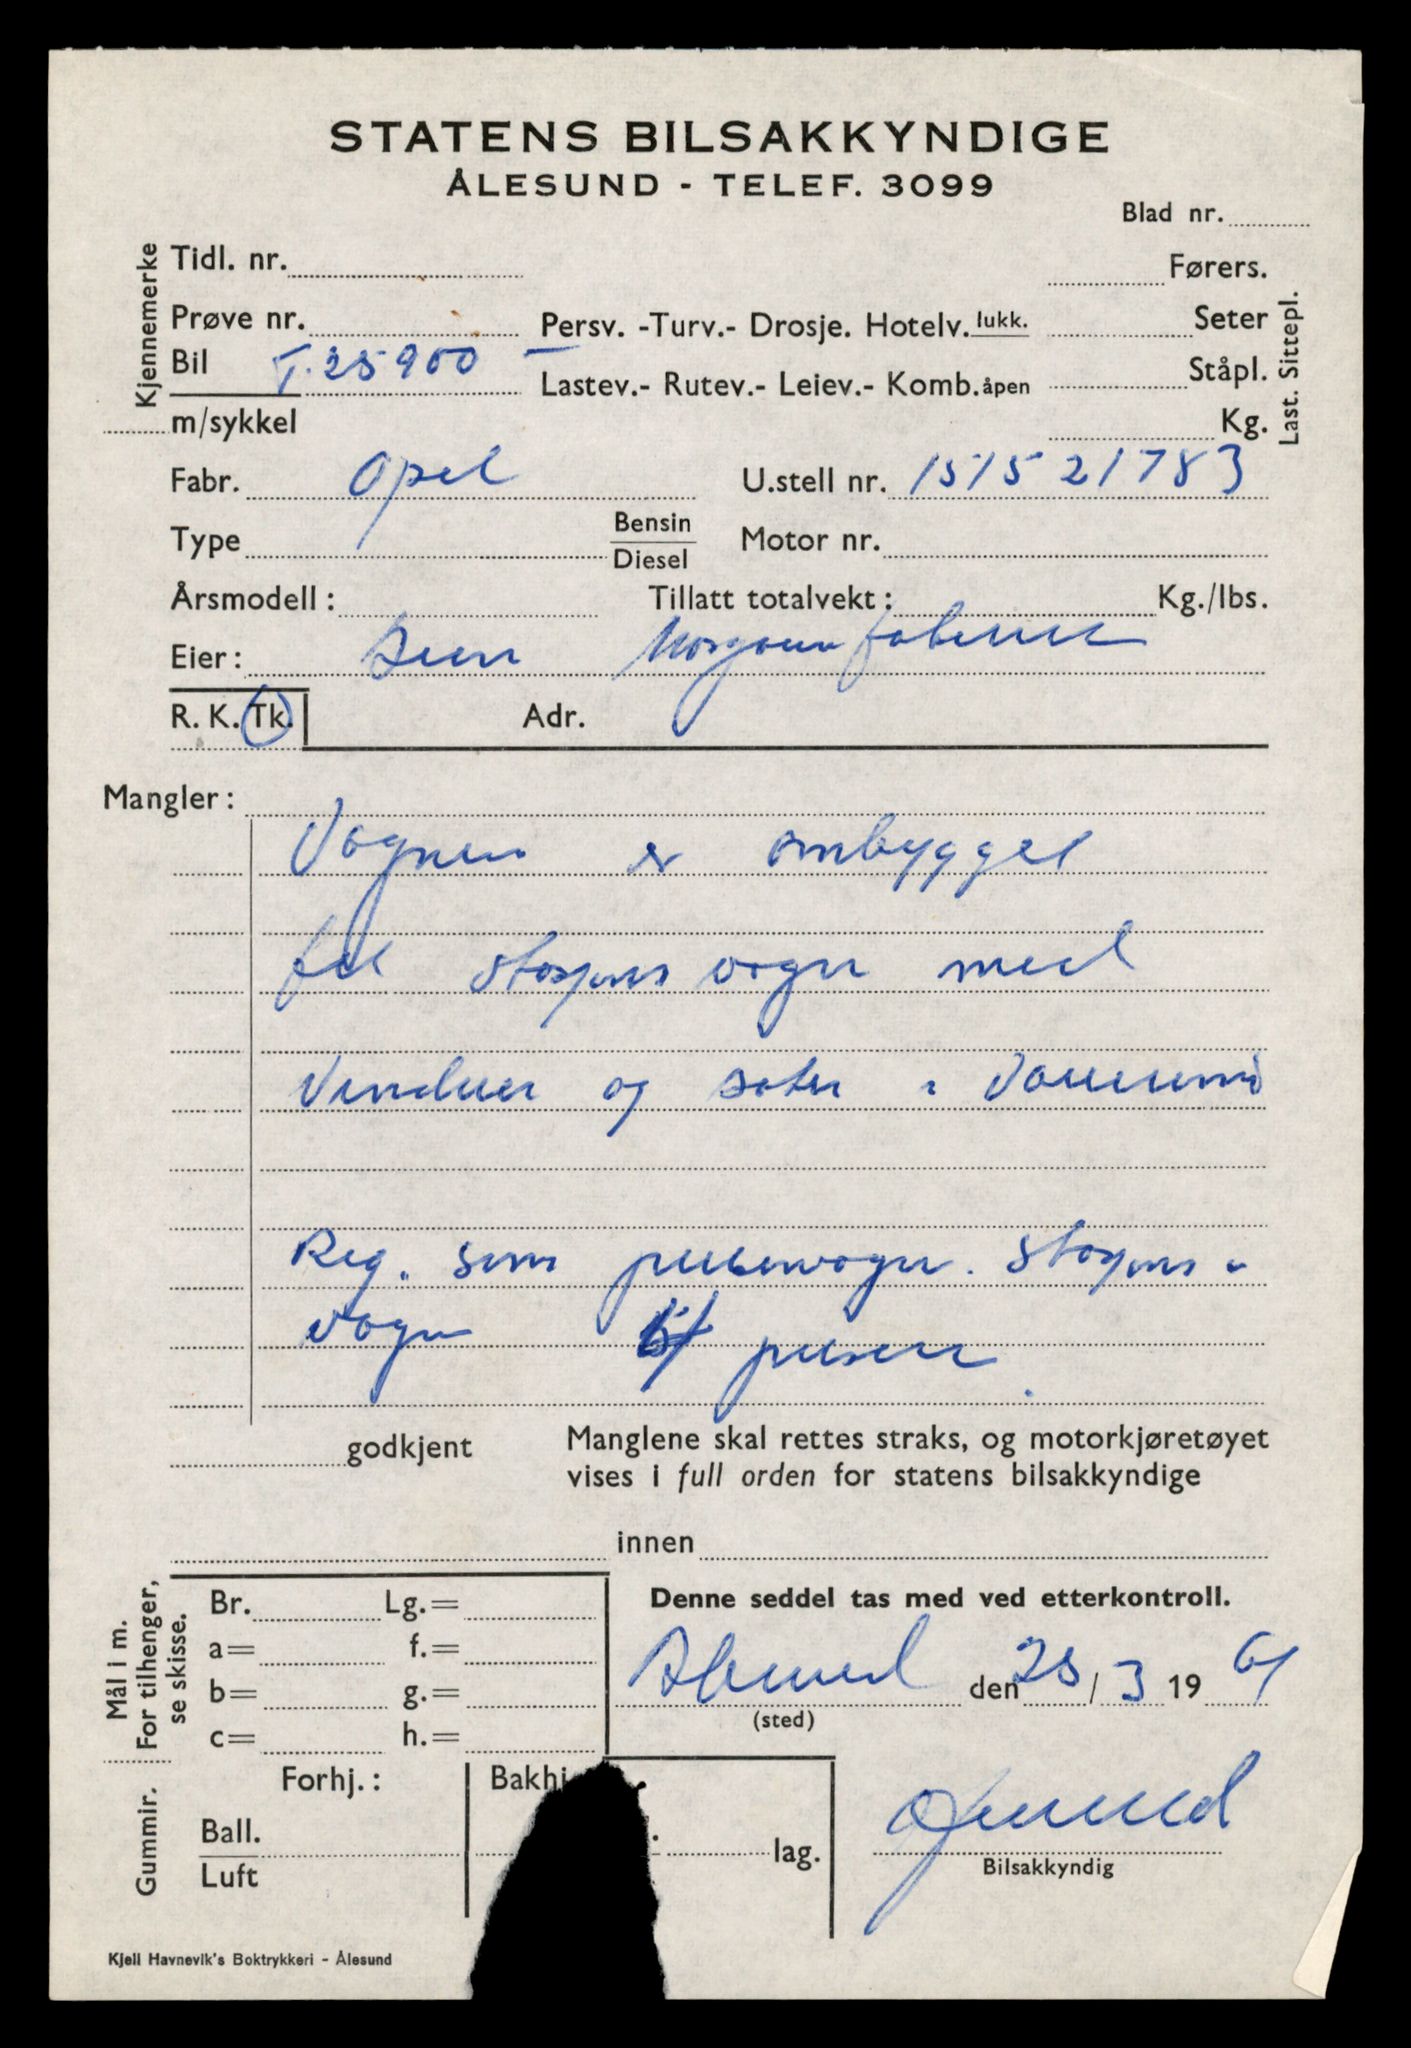 STATENS BILSAKKYNDIGE
ÅLESUND - TELEF. 3099
Blad nr.
Kjennemerke
Tidl. nr.
Førers.
Prøve nr.
Persv. -Turv.- Drosje. Hotelv. lukk.
Seter
Bil T. 25900 -
Lastev.- Rutev.- Leiev.- Komb. åpen
Ståpl.
m/sykkel
Kg.
Last. Sittepl.
Fabr. Opel
U.stell nr. 151521783
Type
Bensin
Diesel
Motor nr.
Årsmodell:
Tillatt totalvekt: Kg./lbs.
Eier:
R. K. Tk.
Adr.
Mangler:
Vognen er ombygget
til stasjons vogn med
Vinduer og seter i
Reg. som personvogn. stasjons-
vogn 5/ person.
godkjent
Manglene skal rettes straks, og motorkjøretøyet
vises i full orden for statens bilsakkyndige
innen
Mål i m.
For tilhenger,
se skisse.
Br. Lg.=
a= f.=
b= g.=
c= h.=
Denne seddel tas med ved etterkontroll.
Ålesund den 25/3 1961
(sted)
Gummir.
Forhj.:
Bakhj
Ball.
Luft
lag.
Bilsakkyndig
Kjell Havnevik's Boktrykkeri - Ålesund